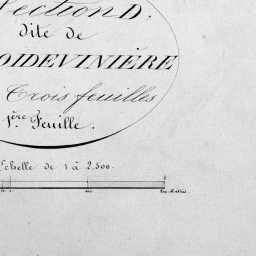 Section D.
dite de
OIDEVINIÈRE
Trois feuilles
1ère Feuille.
Echelle de 1 à 2,500.